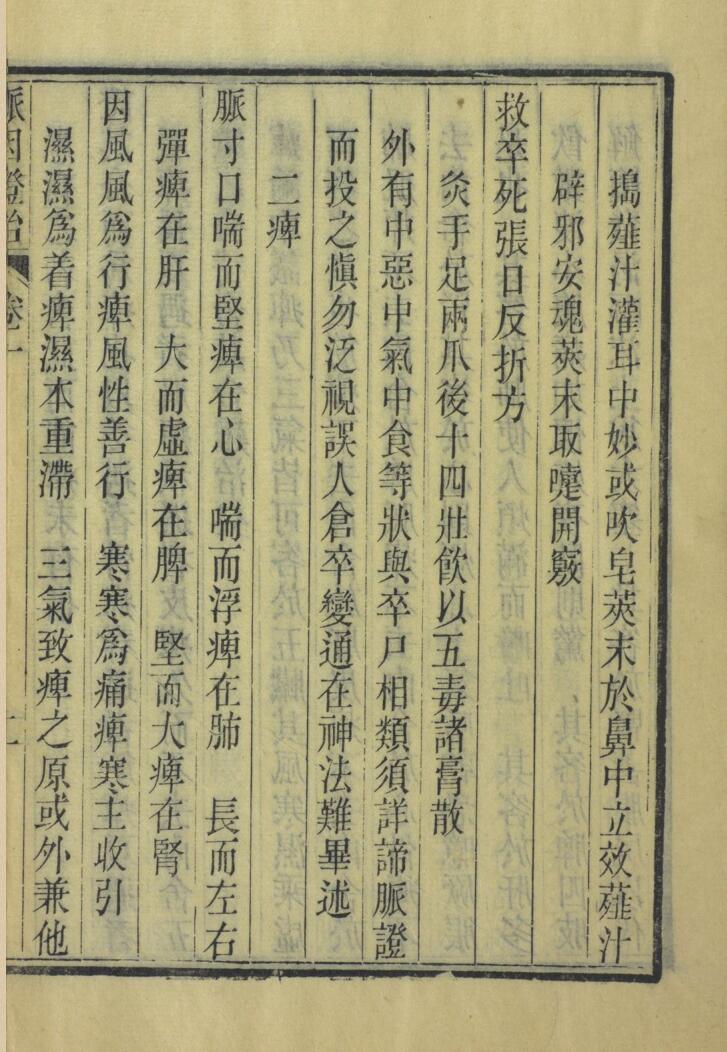 搗薤汁灌耳中妙或吹皂莢末於鼻中立效薤汁
辟邪安魂莢末取嚔開竅
救卒死張目反折方
灸手足兩爪後十四壯飲以五毒諸膏散
外有中惡中氣中食等狀與卒尸相類須詳諦脈證
而投之愼勿泛視誤人倉卒變通在神法難畢述
二痺
脈寸口喘而堅痺在心 喘而浮痺在肺 長而左右
彈痺在肝 大而虛痺在脾 堅而大痺在腎
因風風爲行痺風性善行 寒寒爲痛痺寒主收引
濕濕爲着痺濕本重滯 三氣致痺之原或外兼他
脈因證治 卷一 二